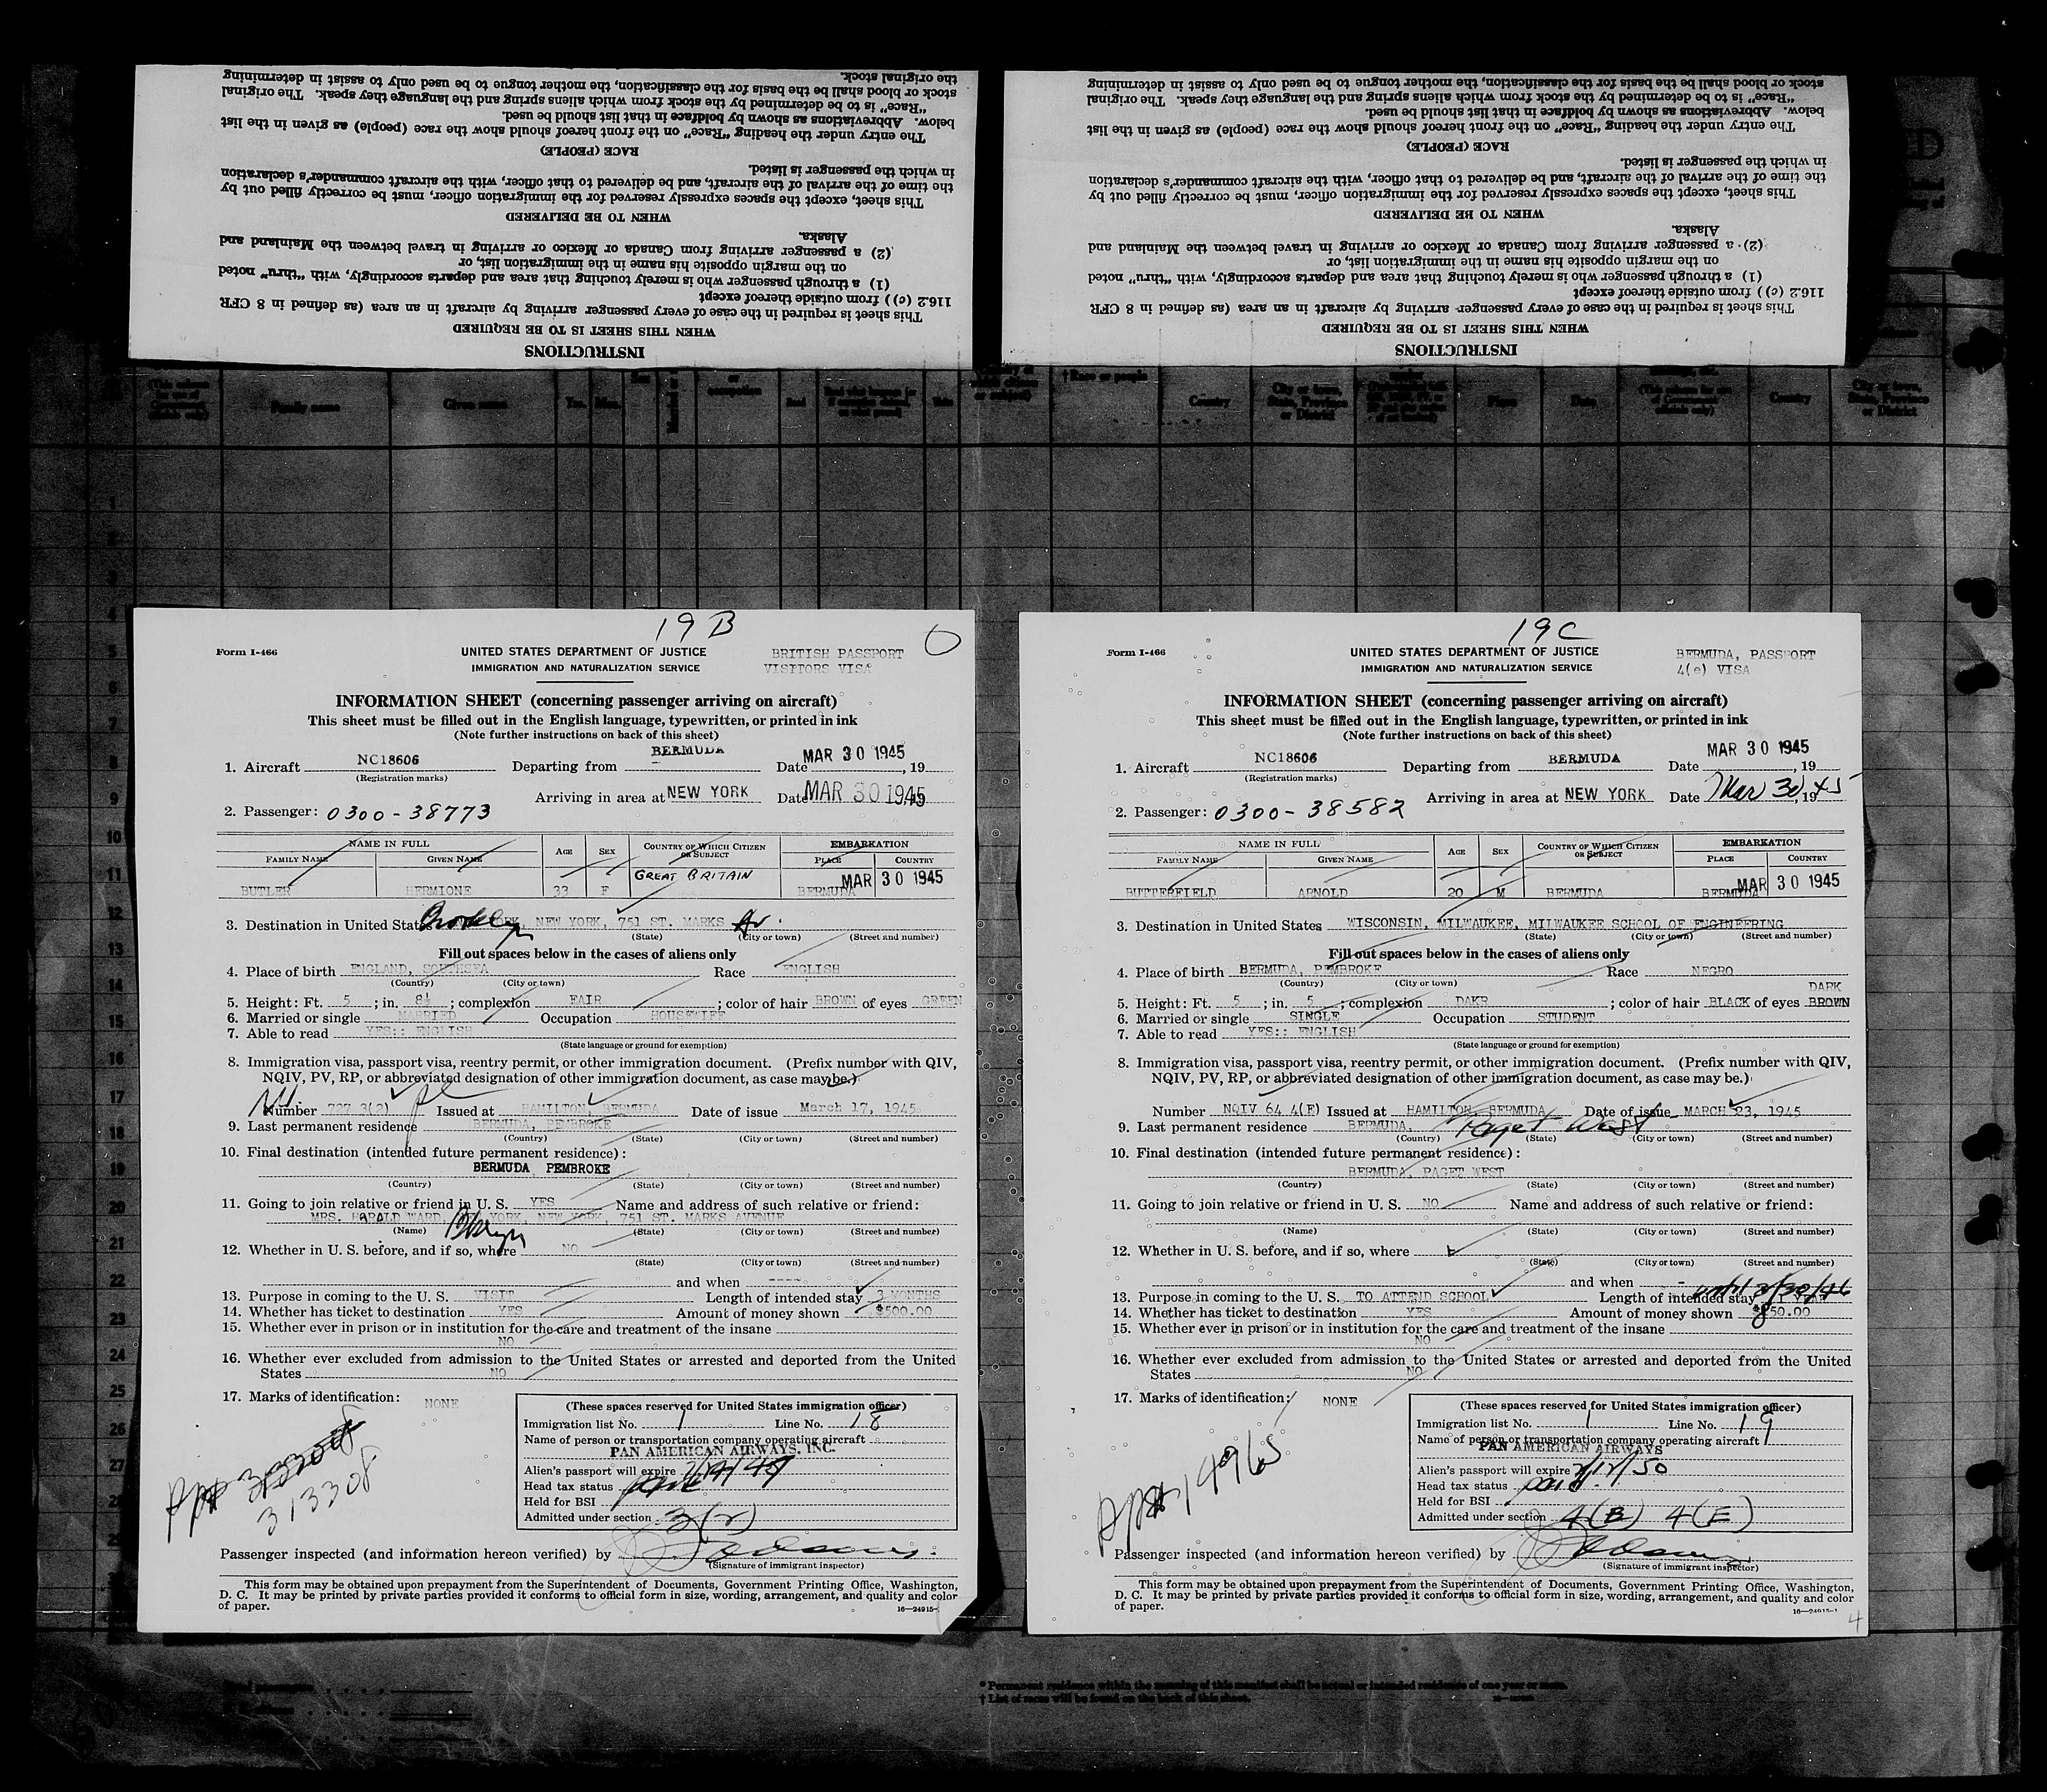 INSTRUCTIONS
WHEN THIS SHEET IS TO BE REQUIRED
This sheet is required in the case of every passenger arriving by aircraft in an area (as defined in 8 CFR
116.2 (c)) from outside thereof except
(1) a through passenger who is merely touching that area and departs accordingly, with "thru" noted
on the margin opposite his name in the immigration list, or
(2) a passenger arriving from Canada or Mexico or arriving in travel between the Mainland and
Alaska.
WHEN TO BE DELIVERED
This sheet, except the spaces expressly reserved for the immigration officer, must be correctly filled out by
the time of the arrival of the aircraft, and be delivered to that officer, with the aircraft commander's declaration
in which the passenger is listed.
RACE (PEOPLE)
The entry under the heading "Race" on the front hereof should show the race (people) as given in the list
below. Abbreviations as shown by boldface in that list should be used.
"Race" is to be determined by the stock from which aliens spring and the language they speak. The original
stock or blood shall be the basis for the classification, the mother tongue to be used only to assist in determining
the original stock.
INSTRUCTIONS
WHEN THIS SHEET IS TO BE REQUIRED
This sheet is required in the case of every passenger arriving by aircraft in an area (as defined in 8 CFR
116.2 (c)) from outside thereof except
(1) a through passenger who is merely touching that area and departs accordingly, with "thru" noted
on the margin opposite his name in the immigration list, or
(2) a passenger arriving from Canada or Mexico or arriving in travel between the Mainland and
Alaska.
WHEN TO BE DELIVERED
This sheet, except the spaces expressly reserved for the immigration officer, must be correctly filled out by
the time of the arrival of the aircraft, and be delivered to that officer, with the aircraft commander's declaration
in which the passenger is listed.
RACE (PEOPLE)
The entry under the heading "Race" on the front hereof should show the race (people) as given in the list
below. Abbreviations as shown by boldface in that list should be used.
"Race" is to be determined by the stock from which aliens spring and the language they speak. The original
stock or blood shall be the basis for the classification, the mother tongue to be used only to assist in determining
Family name Given name Yrs. Mos. occupation Read † Race or people Country City or town, State, Province or District Place Date Country City or town, State, Province or District
19 B
Form I-466 UNITED STATES DEPARTMENT OF JUSTICE BRITISH PASSPORT
IMMIGRATION AND NATURALIZATION SERVICE VISITORS VISA
INFORMATION SHEET (concerning passenger arriving on aircraft)
This sheet must be filled out in the English language, typewritten, or printed in ink
(Note further instructions on back of this sheet)
1. Aircraft NC18606 Departing from BERMUDA Date MAR 30 1945, 19
(Registration marks)
Arriving in area at NEW YORK Date MAR 30 1945
2. Passenger: 0300-38773
NAME IN FULL AGE SEX COUNTRY OF WHICH CITIZEN OR SUBJECT EMBARKATION
FAMILY NAME GIVEN NAME PLACE COUNTRY
BUTLER HERMIONE 33 F GREAT BRITAIN BERMUDA MAR 30 1945
3. Destination in United States Brooklyn NEW YORK, 751 ST. MARKS Av.
(State) (City or town) (Street and number)
Fill out spaces below in the cases of aliens only
4. Place of birth ENGLAND, SOUTHSEA Race ENGLISH
(Country) (City or town)
5. Height: Ft. 5; in. 8½; complexion FAIR; color of hair BROWN of eyes GREEN
6. Married or single MARRIED Occupation HOUSEWIFE
7. Able to read YES:: ENGLISH
(State language or ground for exemption)
8. Immigration visa, passport visa, reentry permit, or other immigration document. (Prefix number with QIV,
NQIV, PV, RP, or abbreviated designation of other immigration document, as case may be.)
Number 727 3(2) Issued at HAMILTON, BERMUDA Date of issue March 17, 1945
9. Last permanent residence BERMUDA, PEMBROKE
(Country) (State) (City or town) (Street and number)
10. Final destination (intended future permanent residence):
BERMUDA PEMBROKE
(Country) (State) (City or town) (Street and number)
11. Going to join relative or friend in U. S. YES Name and address of such relative or friend:
MRS. HAROLD WARD, YORK, NEW YORK, 751 ST. MARKS AVENUE
(Name) (State) (City or town) (Street and number)
12. Whether in U. S. before, and if so, where NO
(State) (City or town) (Street and number)
and when ----
13. Purpose in coming to the U. S. VISIT Length of intended stay 3 MONTHS
14. Whether has ticket to destination YES Amount of money shown $500.00
15. Whether ever in prison or in institution for the care and treatment of the insane
NO
16. Whether ever excluded from admission to the United States or arrested and deported from the United
States NO
17. Marks of identification: NONE
(These spaces reserved for United States immigration officer)
Immigration list No. 1 Line No. 18
Name of person or transportation company operating aircraft
PAN AMERICAN AIRWAYS, INC.
Alien's passport will expire
Head tax status
Held for BSI
Admitted under section 3(2)
313308
Passenger inspected (and information hereon verified) by
(Signature of immigrant inspector)
This form may be obtained upon prepayment from the Superintendent of Documents, Government Printing Office, Washington,
D. C. It may be printed by private parties provided it conforms to official form in size, wording, arrangement, and quality and color
of paper. 16—24915-
19 C
Form I-466 UNITED STATES DEPARTMENT OF JUSTICE BERMUDA, PASSPORT
IMMIGRATION AND NATURALIZATION SERVICE 4(e) VISA
INFORMATION SHEET (concerning passenger arriving on aircraft)
This sheet must be filled out in the English language, typewritten, or printed in ink
(Note further instructions on back of this sheet)
1. Aircraft NC18606 Departing from BERMUDA Date MAR 30 1945, 19
(Registration marks)
Arriving in area at NEW YORK Date Mar 30, 1945
2. Passenger: 0300-38582
NAME IN FULL AGE SEX COUNTRY OF WHICH CITIZEN OR SUBJECT EMBARKATION
FAMILY NAME GIVEN NAME PLACE COUNTRY
BUTTERFIELD ARNOLD 20 M BERMUDA BERMUDA MAR 30 1945
3. Destination in United States WISCONSIN, MILWAUKEE, MILWAUKEE SCHOOL OF ENGINEERING
(State) (City or town) (Street and number)
Fill out spaces below in the cases of aliens only
4. Place of birth BERMUDA, PEMBROKE Race NEGRO
(Country) (City or town)
5. Height: Ft. 5; in. 5; complexion DAKR; color of hair BLACK of eyes DARK BROWN
6. Married or single SINGLE Occupation STUDENT
7. Able to read YES:: ENGLISH
(State language or ground for exemption)
8. Immigration visa, passport visa, reentry permit, or other immigration document. (Prefix number with QIV,
NQIV, PV, RP, or abbreviated designation of other immigration document, as case may be.)
Number NQIV 64 4(E) Issued at HAMILTON, BERMUDA Date of issue MARCH 23, 1945
9. Last permanent residence BERMUDA, Paget West
(Country) (State) (City or town) (Street and number)
10. Final destination (intended future permanent residence):
BERMUDA, PAGET WEST
(Country) (State) (City or town) (Street and number)
11. Going to join relative or friend in U. S. NO Name and address of such relative or friend:
(Name) (State) (City or town) (Street and number)
12. Whether in U. S. before, and if so, where
(State) (City or town) (Street and number)
and when -
13. Purpose in coming to the U. S. TO ATTEND SCHOOL Length of intended stay until 3/30/46
14. Whether has ticket to destination YES Amount of money shown $850.00
15. Whether ever in prison or in institution for the care and treatment of the insane
NO
16. Whether ever excluded from admission to the United States or arrested and deported from the United
States NO
17. Marks of identification: NONE
(These spaces reserved for United States immigration officer)
Immigration list No. 1 Line No. 19
Name of person or transportation company operating aircraft
PAN AMERICAN AIRWAYS
Alien's passport will expire 2/12/50
Head tax status paid.
Held for BSI
Admitted under section 4(B) 4(E)
14965
Passenger inspected (and information hereon verified) by
(Signature of immigrant inspector)
This form may be obtained upon prepayment from the Superintendent of Documents, Government Printing Office, Washington,
D. C. It may be printed by private parties provided it conforms to official form in size, wording, arrangement, and quality and color
of paper. 16—24915-1
4
* Permanent residence within the meaning of this manifest shall be actual or intended residence of one year or more.
† List of races will be found on the back of this sheet.